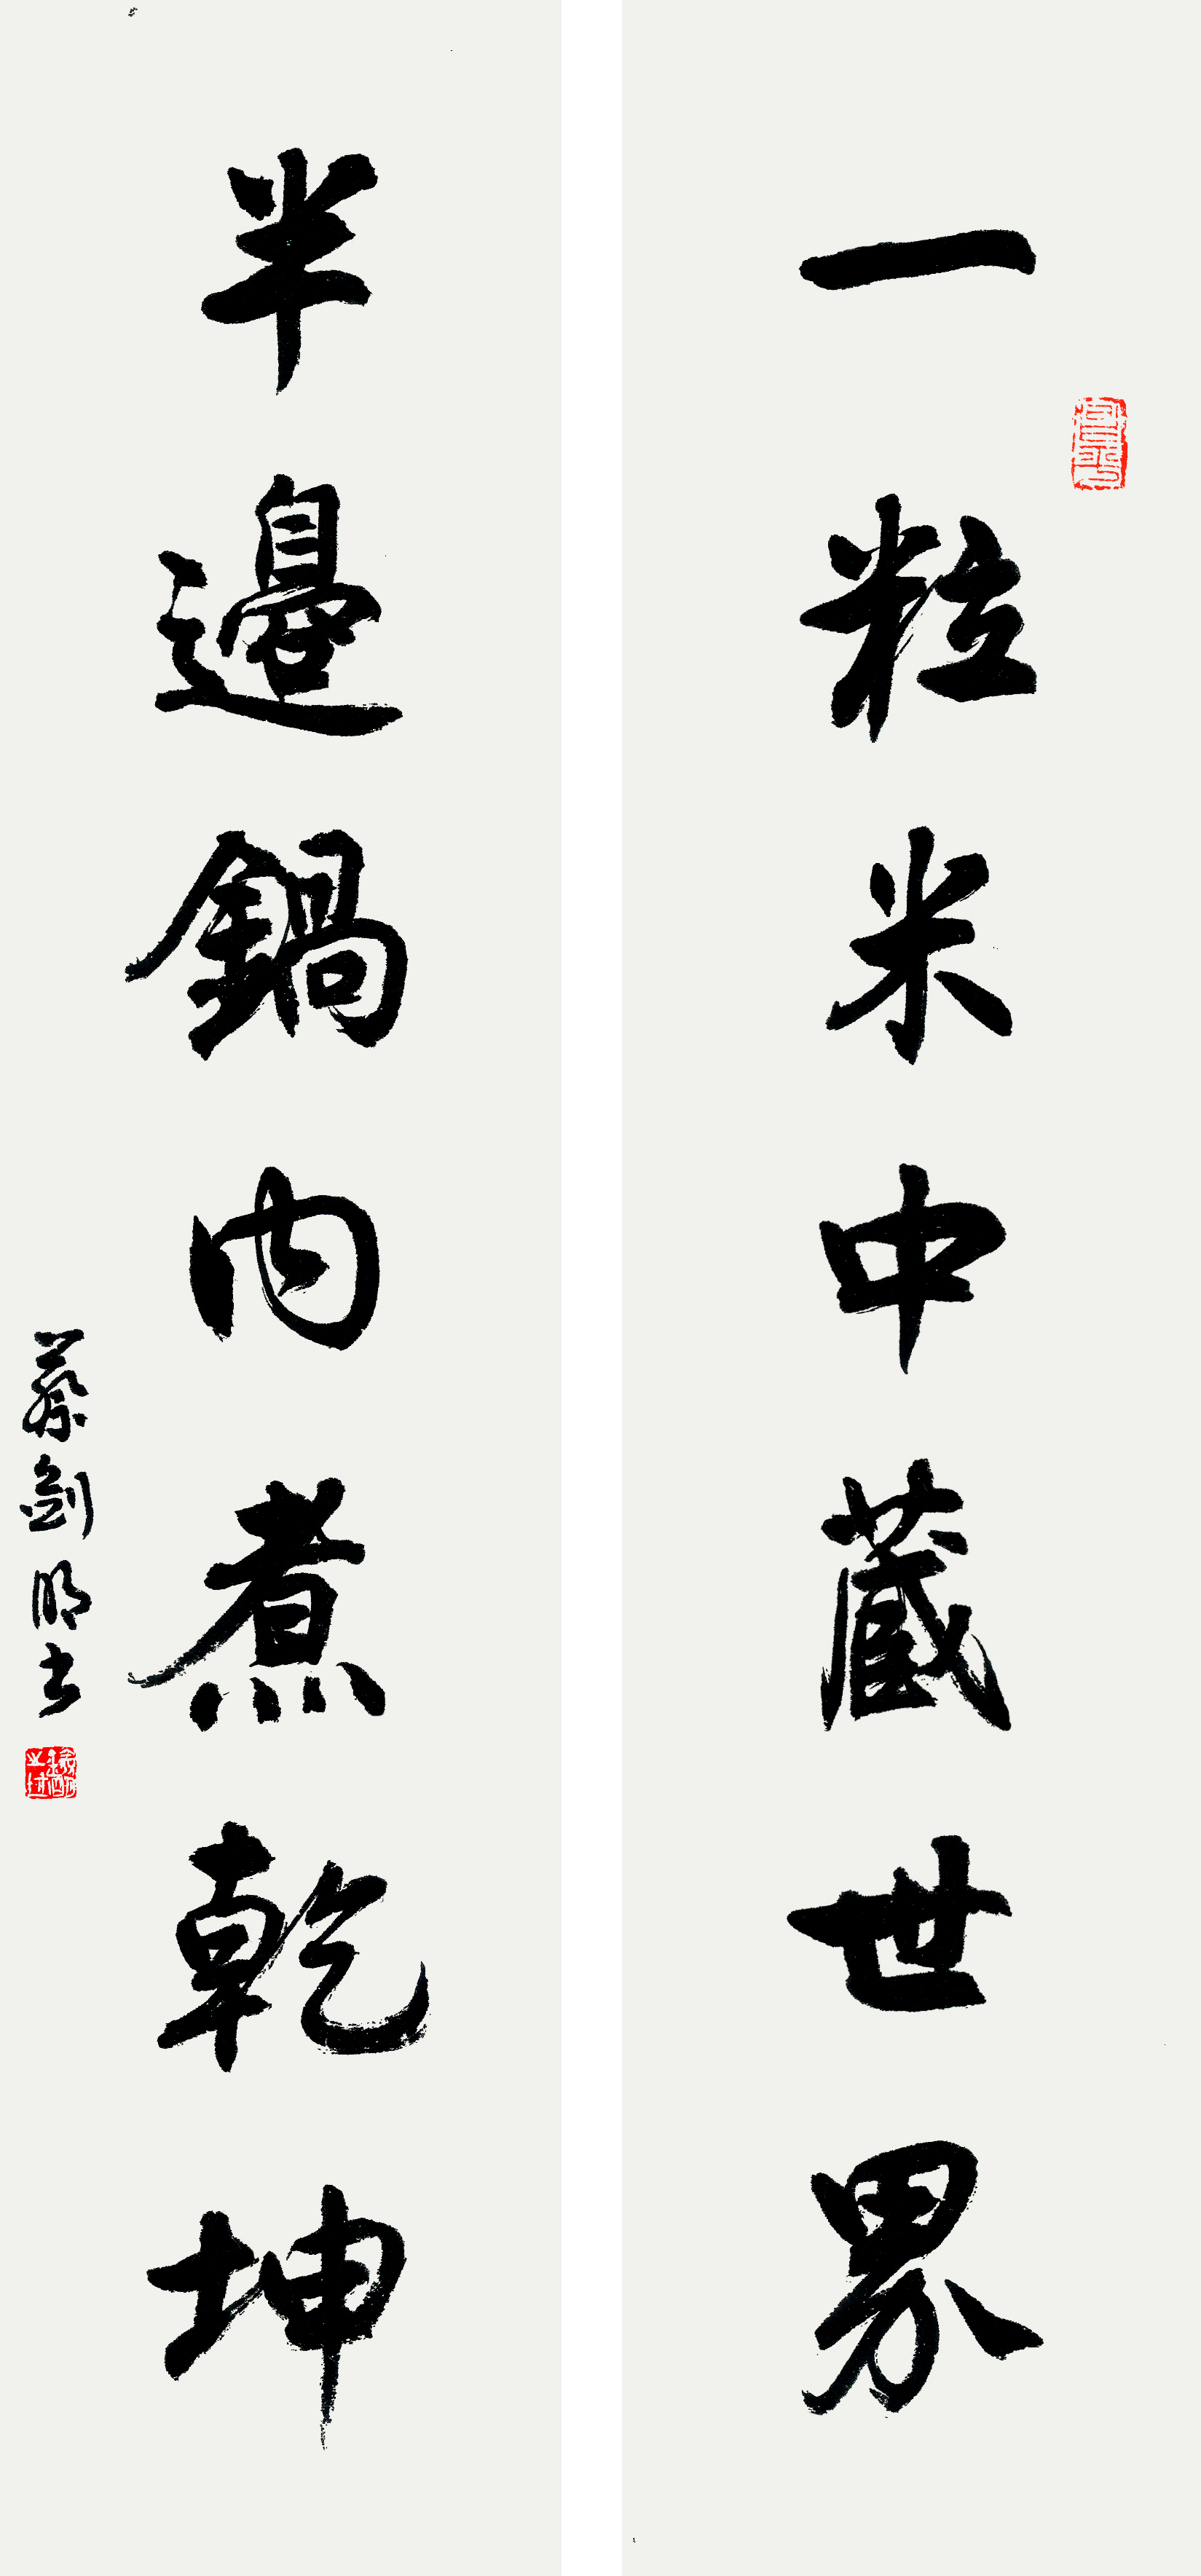 一粒米中藏世界
半邊鍋內煮乾坤
蔡劍明書